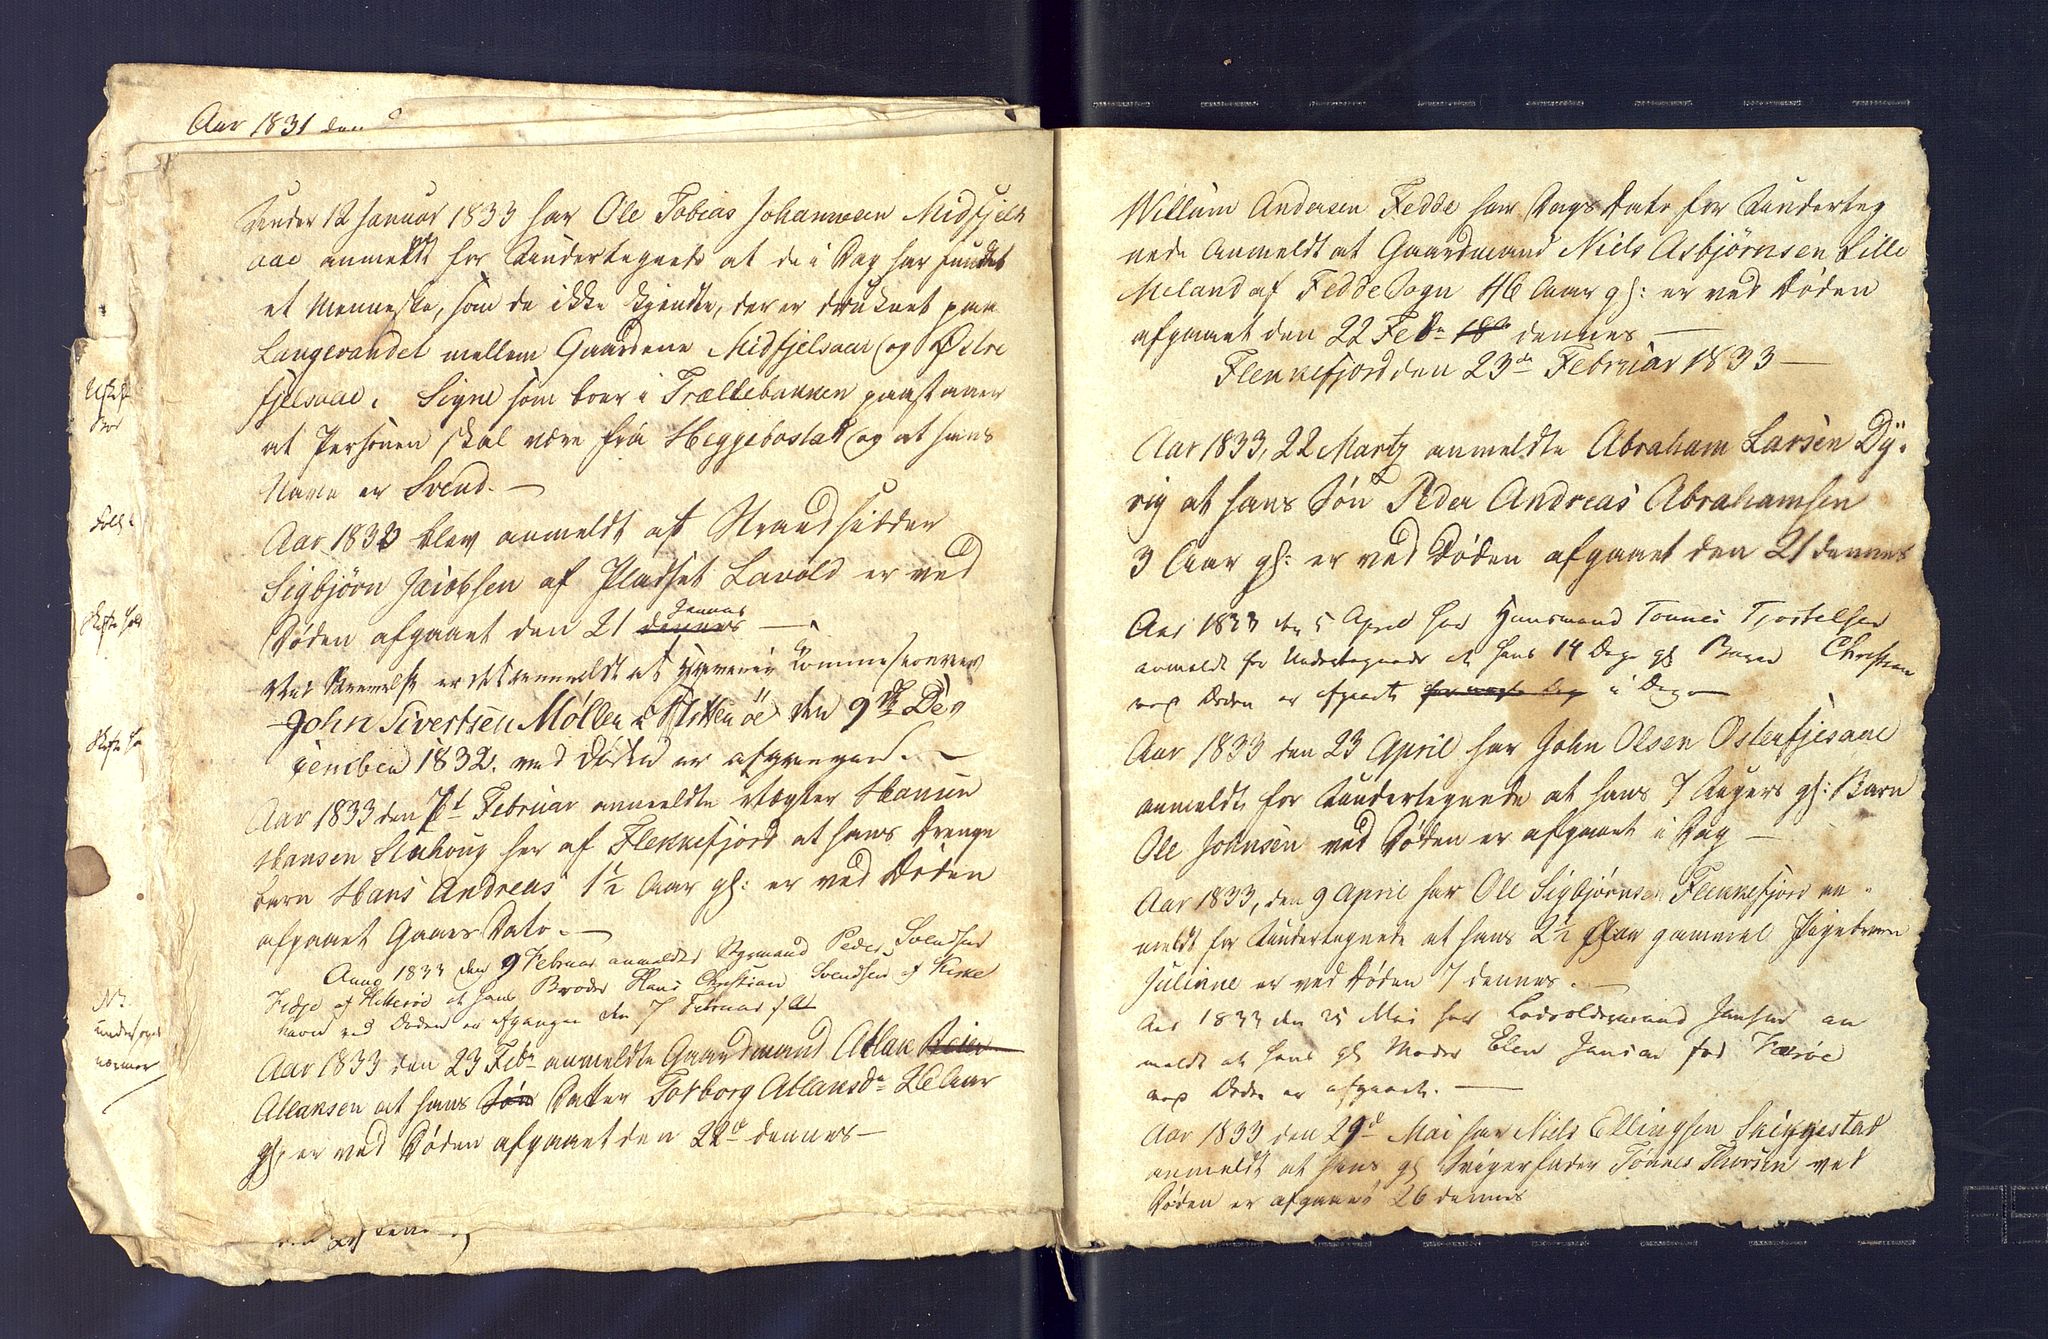 Aar 1831 den
Under 12 Januar 1833 har Ole Tobias Johannesen Midfjels
aae anmeldt for Undertegnede at de i Dag har fundet
et Menneske, som de ikke kjendte, der er druknet paa
Langevandet mellem Gaardene Midfjelsaae og Østre
fjelsaae. Signe som boer i Trællebakken paastaaer
at Personen skal være fra Heggebostad og at hans
Navn er Svend. —
Aar 1833 blev anmeldt at Strandsidder
Sigbjørn Jacobsen af Pladset Lavold er ved
Januar
Døden afgaaet den 21 dennes —
er det anmeldt at
John Sivertsen Møller den 9de De
cember 1832. ved Døden er afgangen. —
Aar 1833 den 7de Februar anmeldte Vægter Hans
Hansen her af Flekkefjord at hans Drenge
barn Hans Andreas 1½ Aar gl: er ved Døden
afgaaet Gaars Dato. —
Anno 1833 den 9 Februar anmeldte Styrmand Peder Svendsen
af Hitterøe at hans Broder Hans Christian Svendsen af Kirke
havn ved Døden er afgangen den 7 Februar
Aar 1833 den 23 Febr anmeldte Gaardmand Atlak
Atlaksen at hans Søn Datter Torborg Atlaksdr 26 Aar
gl. er ved Døden afgaaet den 22d dennes —
Nb.
undersøges
nærmer
Willum Andersen Fedde har Dags Dato for Underteg
nede Anmeldt at Gaardmand Niels Asbjørnsen Lille
Meland af Fedde Sogn 46 Aar gl: er ved Døden
afgaaet den 22 Febr 18 dennes —
Flekkefjord den 23de Februar 1833 —
Aar 1833, 22 Martz anmeldte Abraham Larsen Dy-
rig at hans Søn Peder Andreas Abrahamsen
3 Aar gl: er ved Døden afgaaet den 21 dennes
Aar 1833 den 5 April har Huusmand Tønnes Tjostelsen
anmeldt for Undertegnede at hans 14 Dage gl Barn Christian
ved Døden er afgaaet i Dag —
Aar 1833 den 23 April har John Olsen Osterfjesaae
anmeldt for Undertegnede at hans 7 Uugers gl: Barn
Ole Johnsen ved Døden er afgaaet i Dag —
Aar 1833, den 9 April har Ole Sigbjørnsen Flekkefjord an-
meldt for Undertegnede at hans 2½ Aar gammel Pigebarn
Juliane er ved Døden 7 dennes. —
Aar 1833 den 25 Mai har Lodsoldermand Jansen an
meldt at hans gl Moder Elen Jansen fød
ved Døden er afgaaet. —
Aar 1833 den 29d Mai har Niels Ellingsen Skiggestad
anmeldt at hans gl Svigerfader Tønnes Thorsen ved
Døden er afgaaet 26 dennes